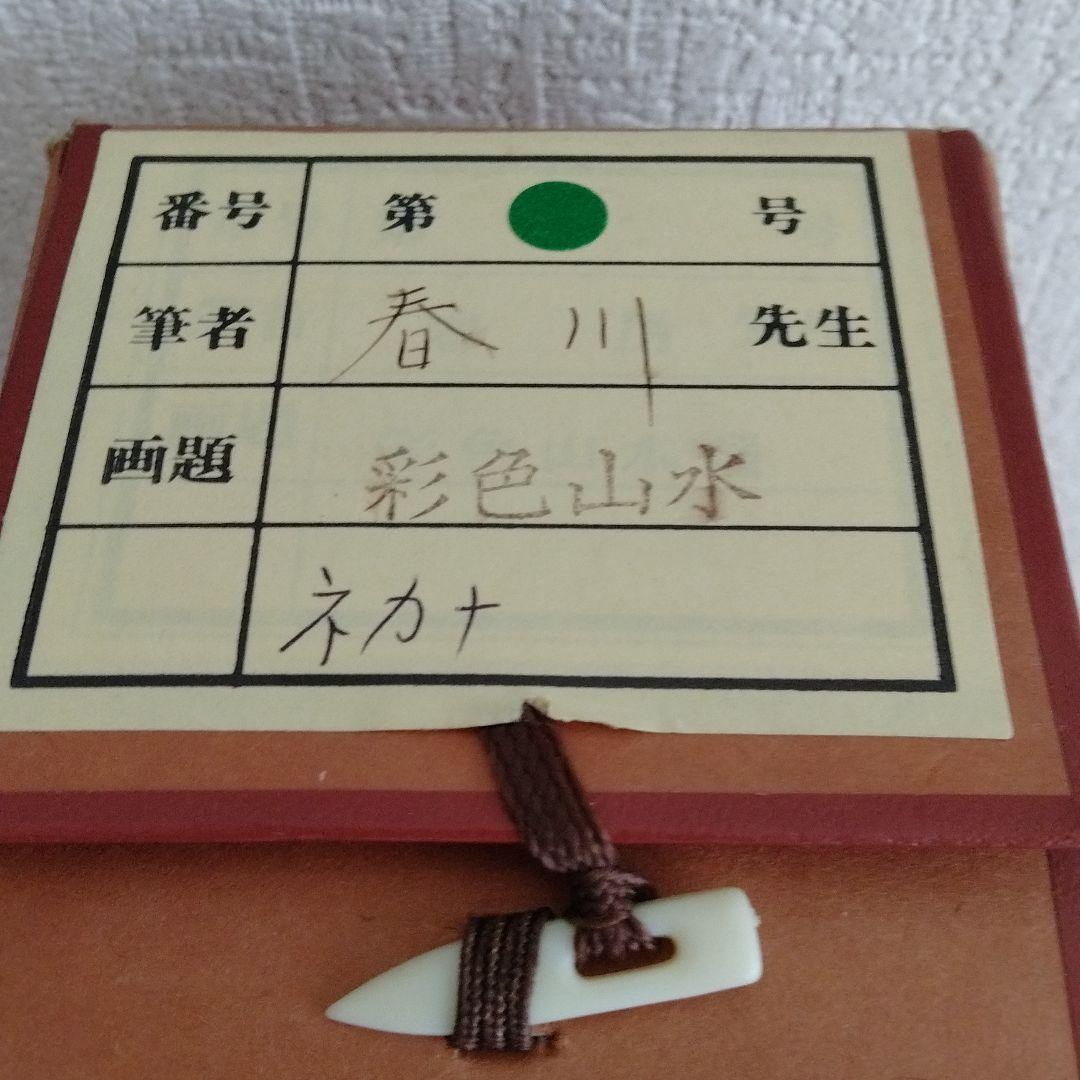 番号 第 号
筆者 春川 先生
画題 彩色山水
ネカナ